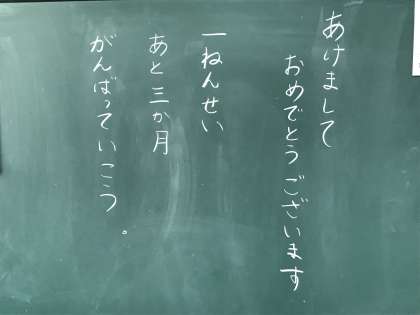 あけまして
おめでとうございます
一ねんせい
あと三か月
がんばっていこう。